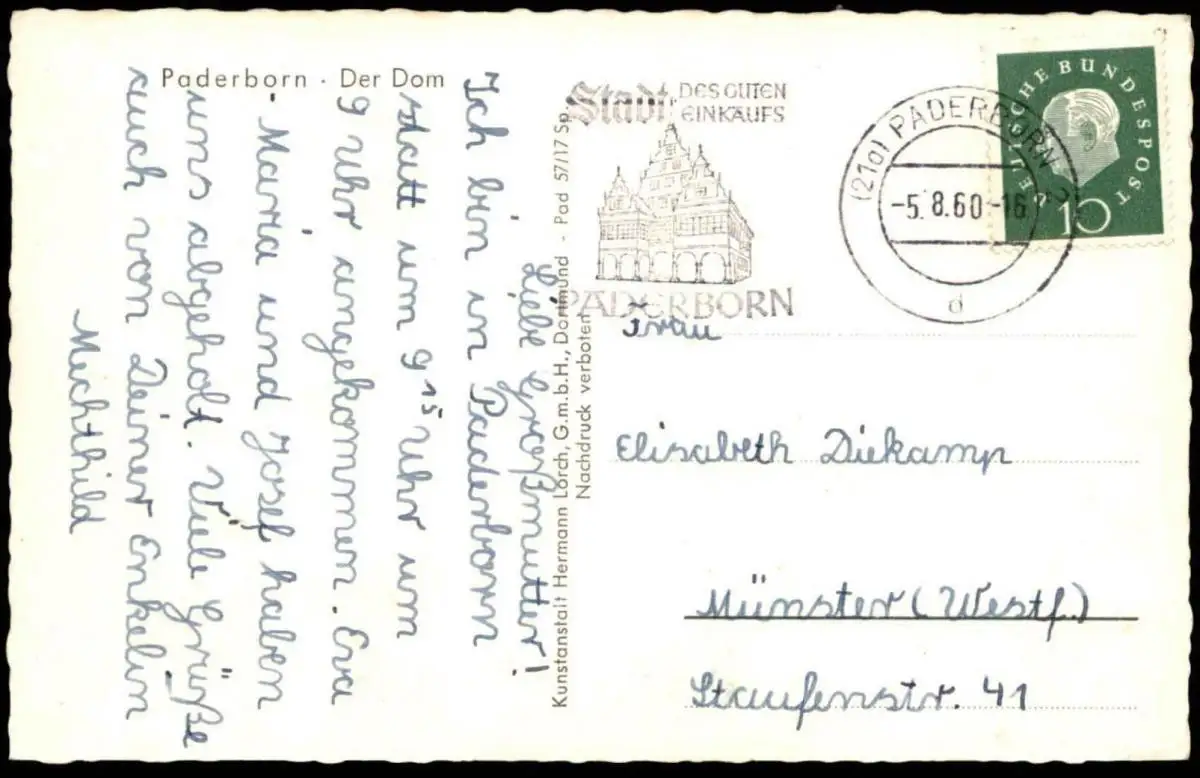 Paderborn · Der Dom
Liebe Großmutter!
Ich bin in Paderborn
statt um 9 15 Uhr um
9 Uhr angekommen. Eva
- Maria und Josef haben
uns abgeholt. Viele Grüße
auch von Deiner Enkelin
Mechthild
Kunstanstalt Hermann Lorch, G.m.b.H., Dortmund - Pad 57/17 Sp.
Nachdruck verboten
Stadt DES GUTEN
EINKAUFS
PADERBORN
(21a) PADERBORN 2
-5.8.60-16
d
DEUTSCHE BUNDESPOST
10
Frau
Elisabeth Diekamp
Münster (Westf.)
Staufenstr. 41